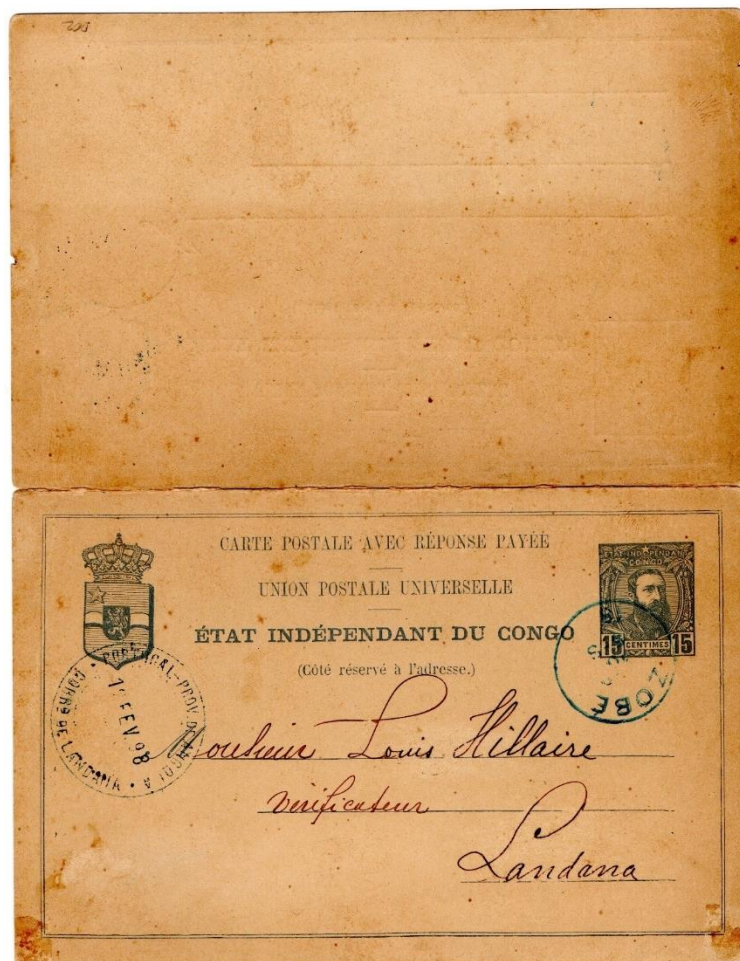 CARTE POSTALE AVEC RÉPONSE PAYÉE
UNION POSTALE UNIVERSELLE
ÉTAT INDÉPENDANT DU CONGO
(Côté réservé à l'adresse.)
ETAT INDÉPENDANT
CONGO
15 CENTIMES 15
ZOBÉ
PORTUGAL-PROV. D'ANGOLA
FEV 98
CORRO DE LANDANA
Monsieur Louis Hillaire
Vérificateur
Landana